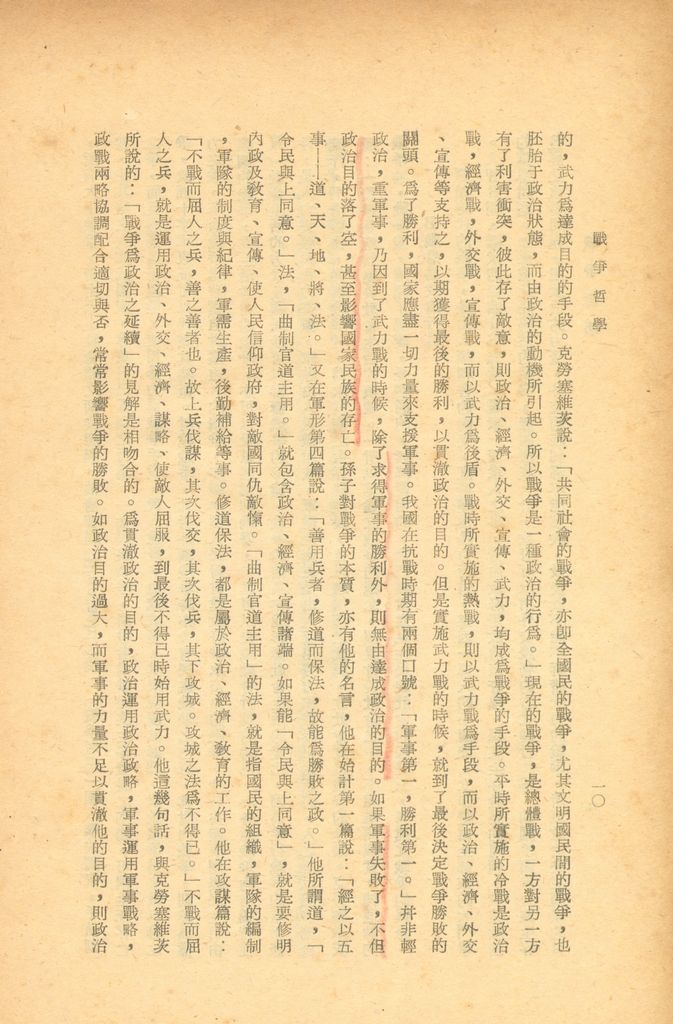 戰爭哲學
一〇
的，武力爲達成目的的手段。克勞塞維茨說：「共同社會的戰爭，亦卽全國民的戰爭，尤其文明國民間的戰爭，也
胚胎于政治狀態，而由政治的動機所引起。所以戰爭是一種政治的行爲。」現在的戰爭，是總體戰，一方對另一方
有了利害衝突，彼此存了敵意，則政治、經濟、外交、宣傳、武力，均成爲戰爭的手段。平時所實施的冷戰是政治
戰，經濟戰，外交戰，宣傳戰，而以武力爲後盾。戰時所實施的熱戰，則以武力戰爲手段，而以政治、經濟、外交
、宣傳等支持之，以期獲得最後的勝利，以貫澈政治的目的。但是實施武力戰的時候，就到了最後決定戰爭勝敗的
關頭。爲了勝利，國家應盡一切力量來支援軍事。我國在抗戰時期有兩個口號：「軍事第一，勝利第一。」幷非輕
政治，重軍事，乃因到了武力戰的時候，除了求得軍事的勝利外，則無由達成政治的目的。如果軍事失敗了，不但
政治目的落了空，甚至影響國家民族的存亡。孫子對戰爭的本質，亦有他的名言，他在始計第一篇說：「經之以五
事——道、天、地、將、法。」又在軍形第四篇說：「善用兵者，修道而保法，故能爲勝敗之政。」他所謂道，「
令民與上同意。」法，「曲制官道主用。」就包含政治、經濟、宣傳諸端。如果能「令民與上同意」，就是要修明
內政及敎育、宣傳、使人民信仰政府，對敵國同仇敵愾。「曲制官道主用」的法，就是指國民的組織，軍隊的編制
，軍隊的制度與紀律，軍需生產，後勤補給等事。修道保法，都是屬於政治、經濟、敎育的工作。他在攻謀篇說：
「不戰而屈人之兵，善之善者也。故上兵伐謀，其次伐交，其次伐兵，其下攻城。攻城之法爲不得已。」不戰而屈
人之兵，就是運用政治、外交、經濟、謀略、使敵人屈服，到最後不得已時始用武力。他這幾句話，與克勞塞維茨
所說的：「戰爭爲政治之延續」的見解是相吻合的。爲貫澈政治的目的，政治運用政治政略，軍事運用軍事戰略，
政戰兩略協調配合適切與否，常常影響戰爭的勝敗。如政治目的過大，而軍事的力量不足以貫澈他的目的，則政治